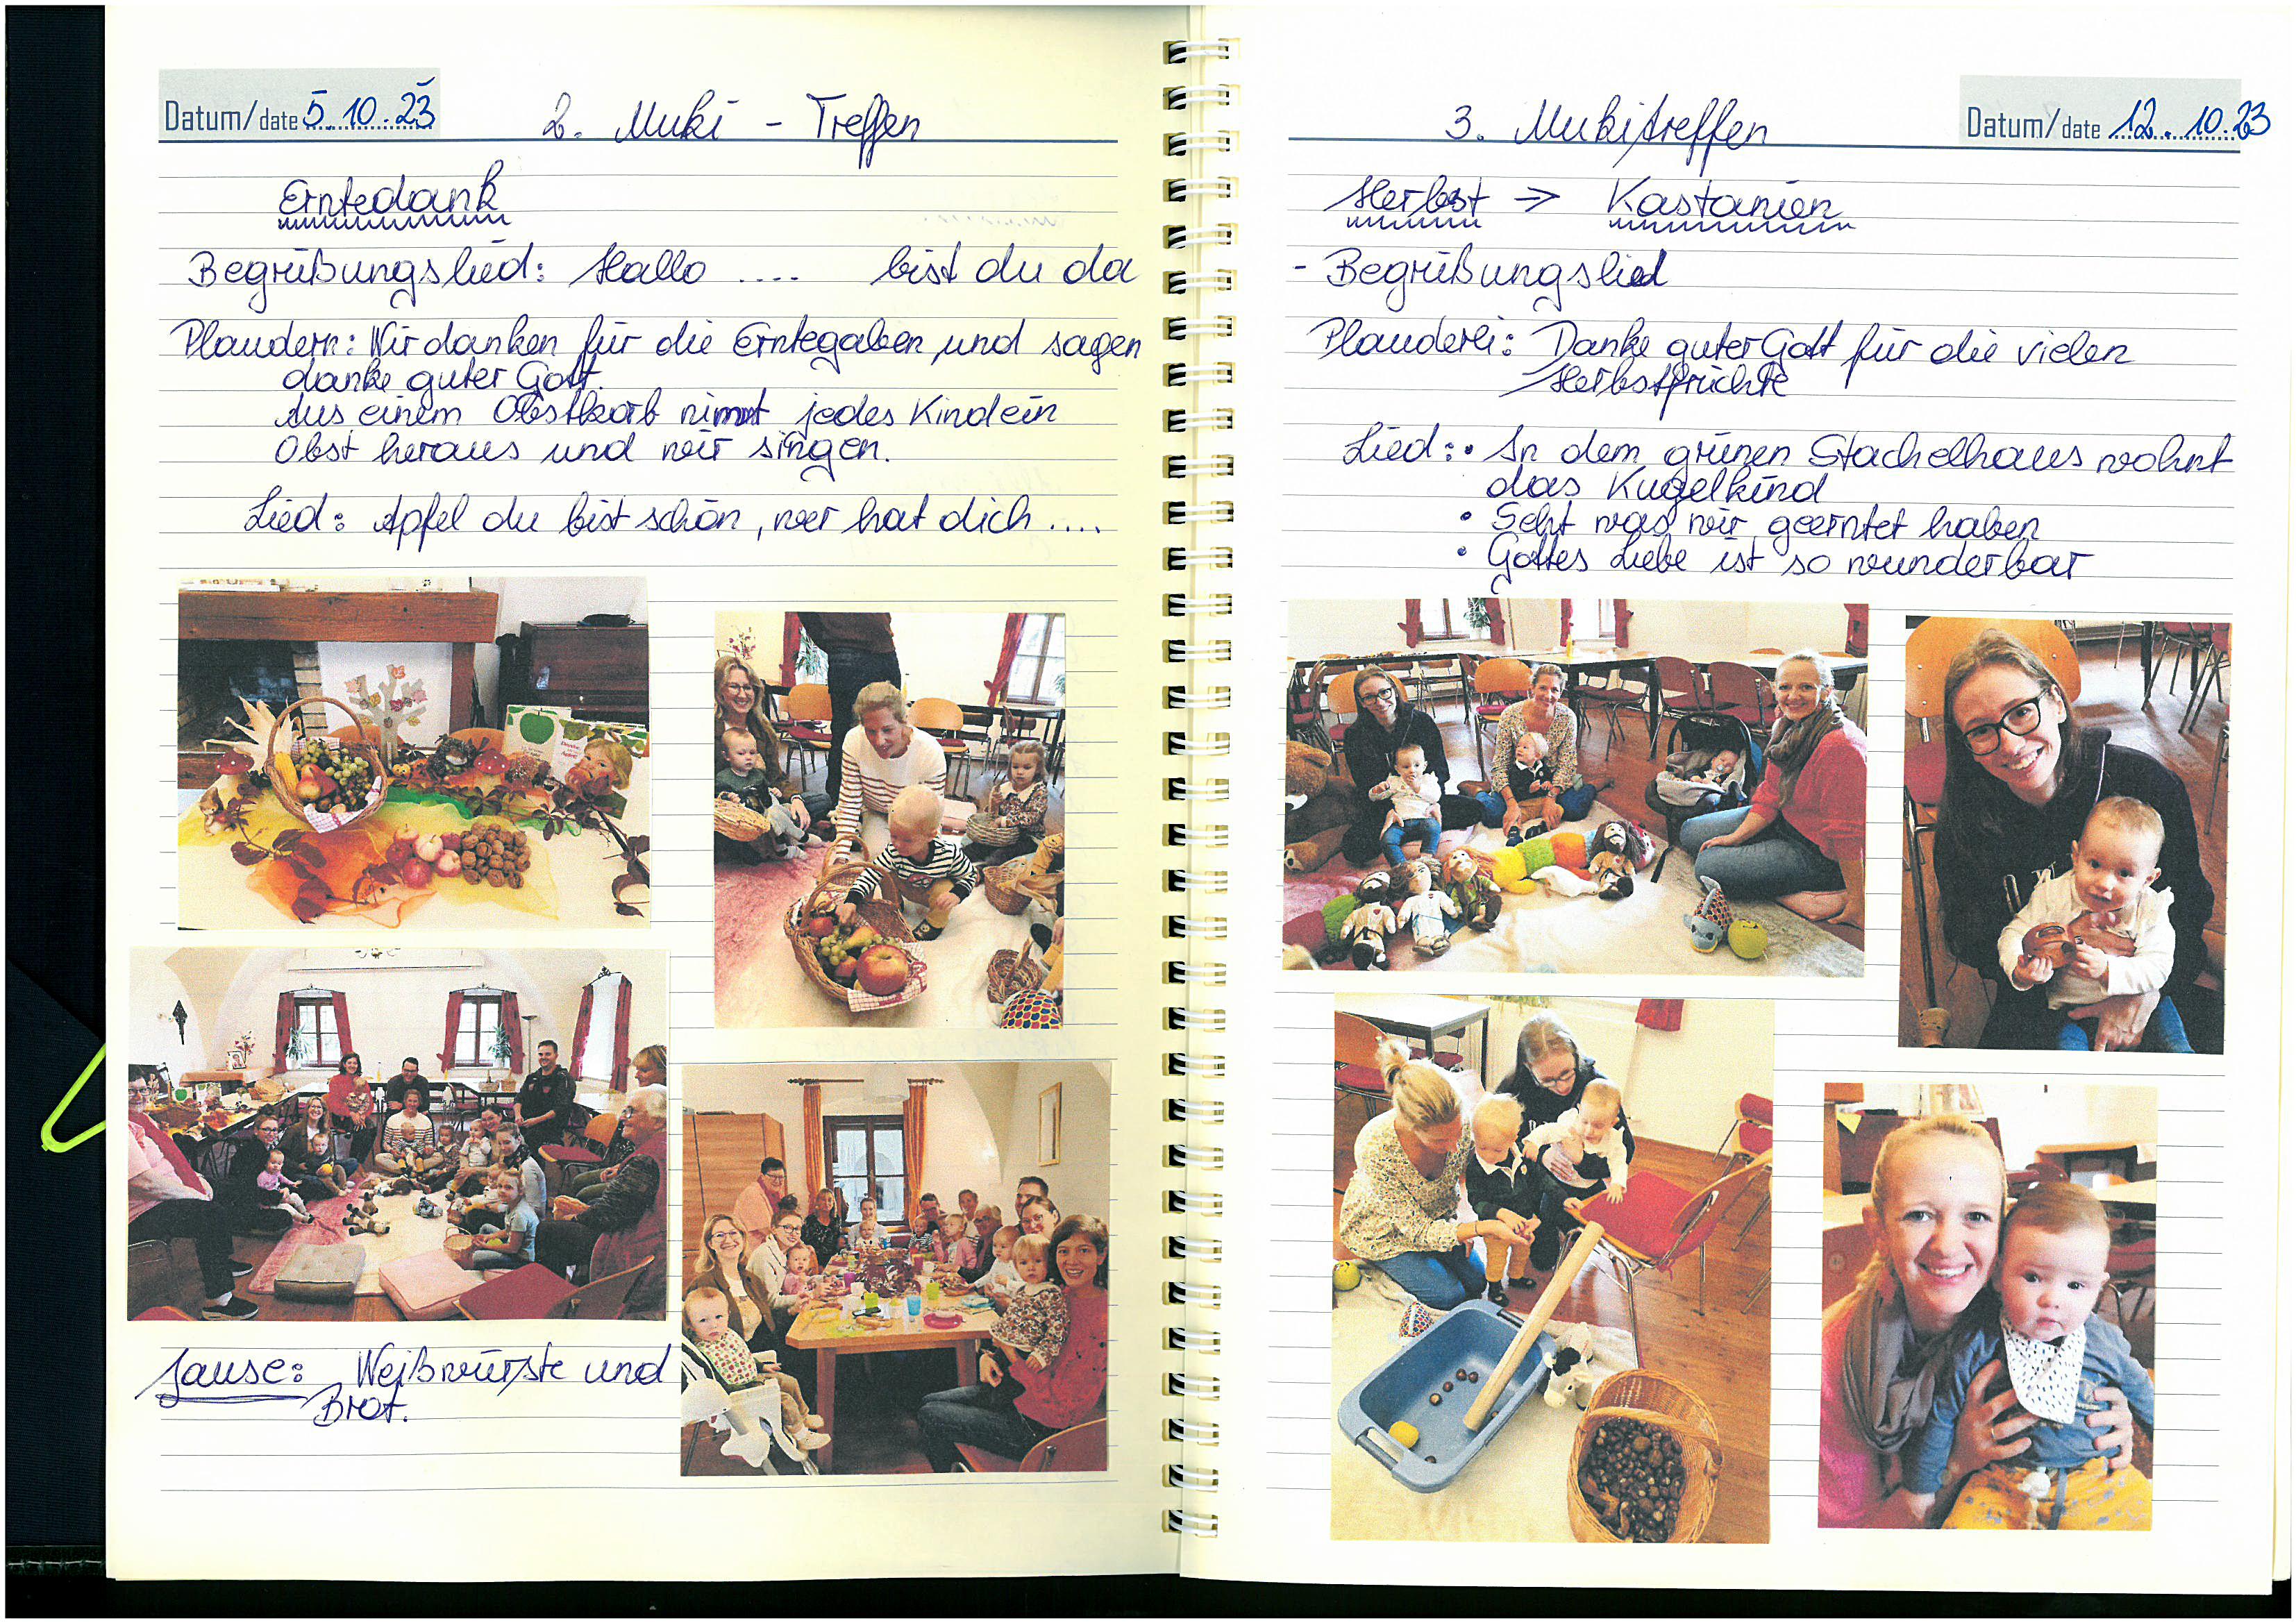 Datum/date 5.10.23
2. Muki - Treffen
Erntedank
Begrüßungslied: Hallo .... bist du da
Plaudern: Wir danken für die Erntegaben und sagen
danke guter Gott.
Aus einem Obstkorb nimmt jedes Kind ein
Obst heraus und wir singen.
Lied: Apfel du bist schön, wer hat dich ....
Jause: Weißwürste und
Brot.
3. Mukitreffen
Datum/date 12.10.23
Herbst => Kastanien
- Begrüßungslied
Plauderei: Danke guter Gott für die vielen
Herbstfrüchte
Lied: • In dem grünen Stachelhaus wohnt
das Kugelkind
• Seht was wir geerntet haben
• Gottes Liebe ist so wunderbar